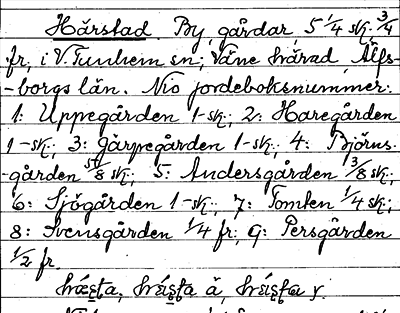 Hårstad. By, gårdar, 5 1/4 sk; 3/4
fr, i V. Tunhem sn; Väne härad, Älfs-
-borgs län. Nio jordeboksnummer:
1: Uppegården 1-sk; 2: Haregården
1-sk; 3: Järpegården 1-sk; 4: Björns-
-gården 5/8 sk; 5: Andersgården 3/8 sk;
6: Sjögården 1-sk; 7: Tomten 1/4 sk;
8: Svensgården 1/4 fr; 9: Persgården
1/2 fr.